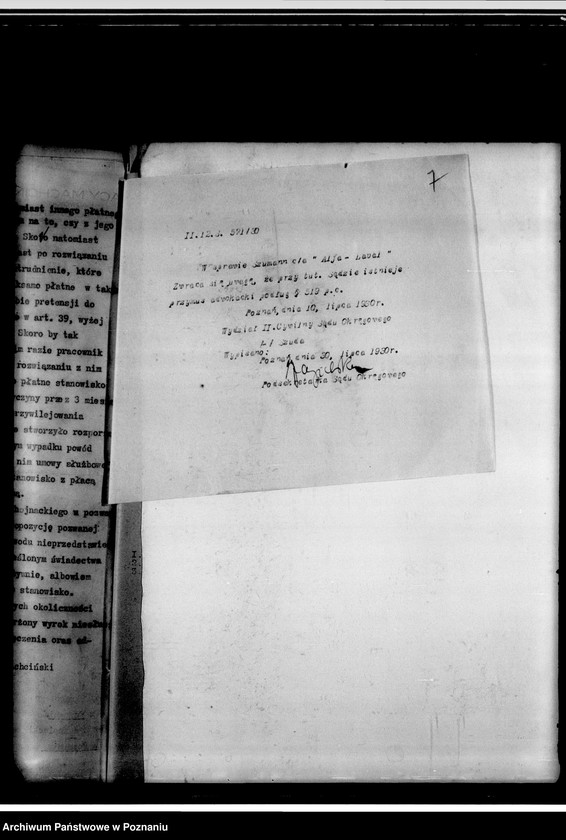 miast innego płatne
na to, czy z jego
Skoro natomiast
ast po rozwiązaniu
trudnienie, które
ksamo płatne w tak
bie pretensji do
w art. 39, wyżej
Skoro by tak
im razie pracownik
rozwiązaniu z nim
płatne stanowisko
czyny przez 3 mies
rzywilejowania
stworzyło rozpor
wypadku powód
nim umowy służbowe
anowisko z płacą
hojnackiego w pozwa
opozycję pozwanej
wodu nieprzedstawie
ślonym świadectwa
ynie, albowiem
stanowisko.
ych okoliczności
rżony wyrok
czenia oraz od-
chciński
7
II.12.J. 591/30
W sprawie Szumann c/a " Alfa- Laval "
Zwraca się uwagę, że przy tut. Sądzie istnieje
przymus adwokacki podług § 519 p.c.
Poznań, dnia 10, lipca 1930r.
Wydział II.Cywilny Sądu Okręgowego
/-/ Szuda
Wypisano:
Poznań dnia 30, lipca 1930r.
Podsekretarka Sądu Okręgowego
Archiwum Państwowe w Poznaniu